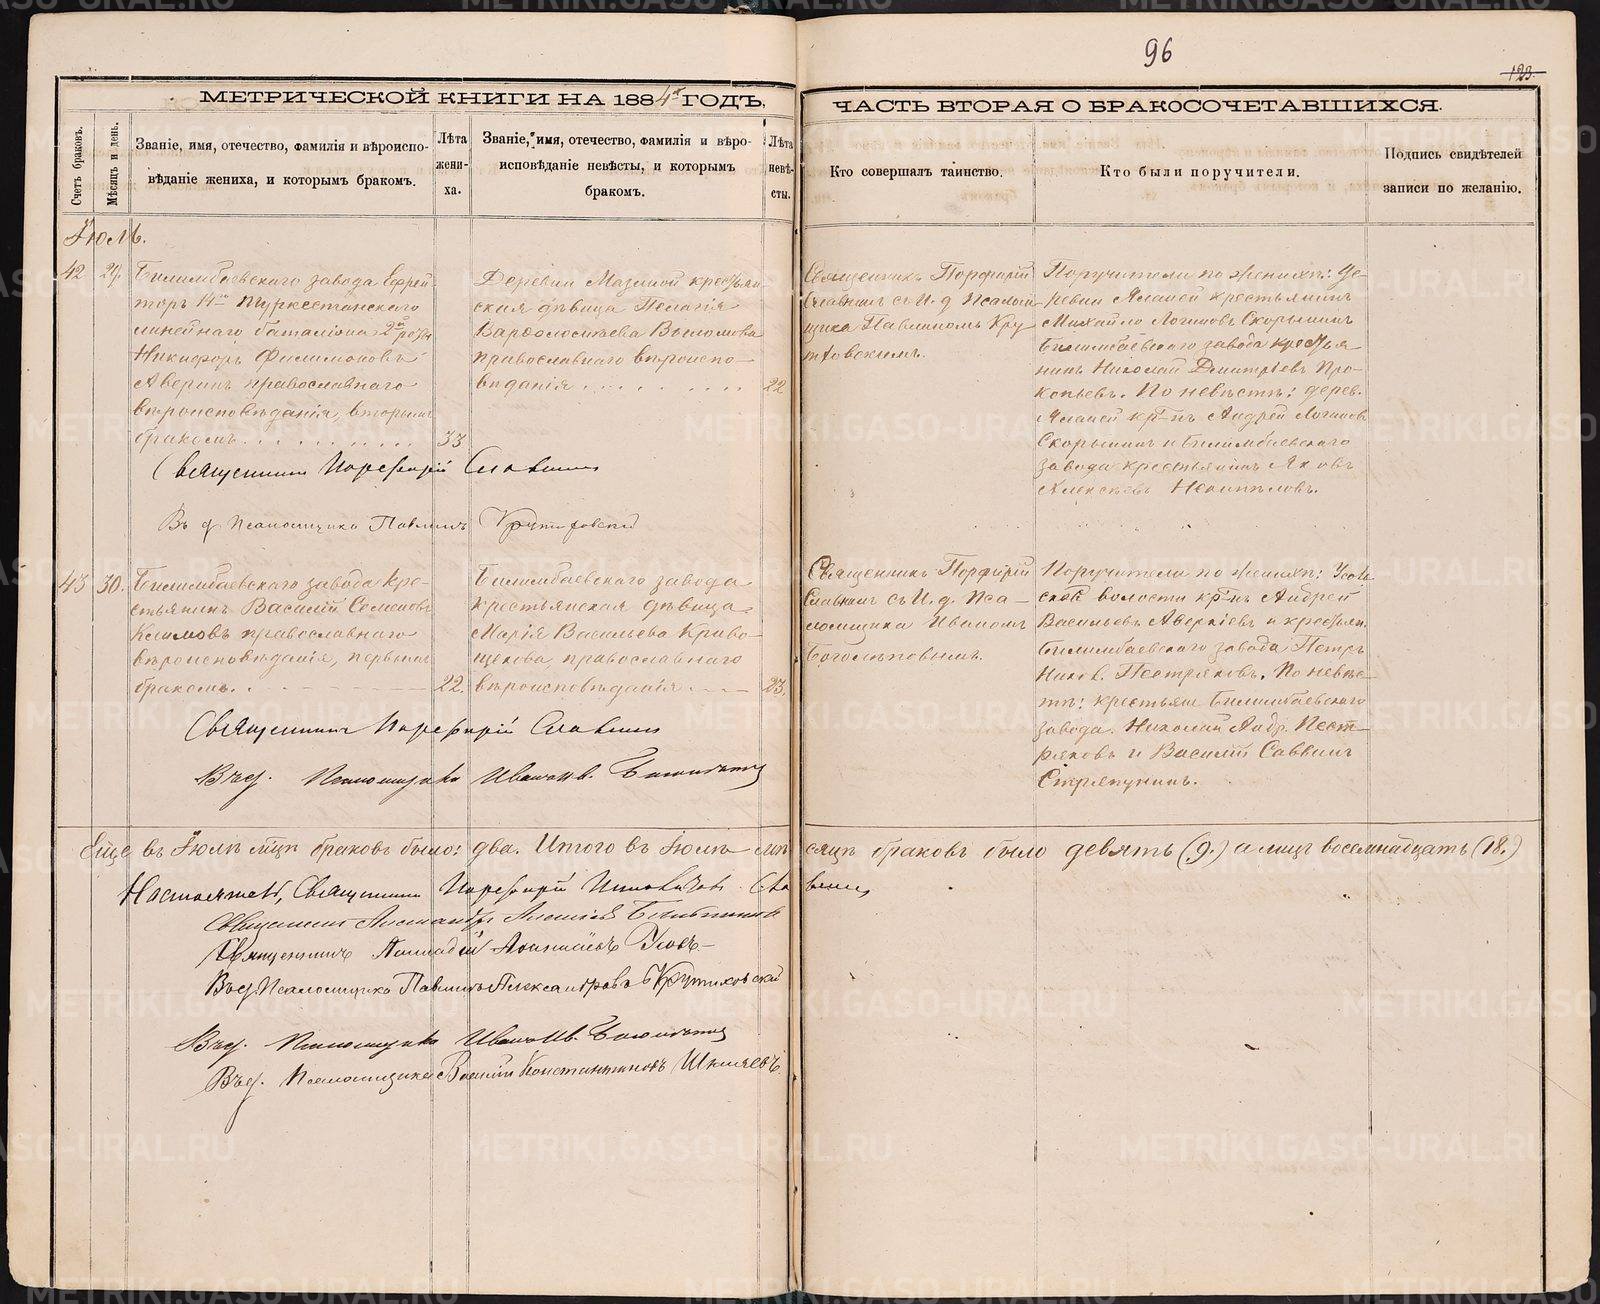 96
123.
МЕТРИЧЕСКОЙ КНИГИ НА 1884й ГОДЪ,
ЧАСТЬ ВТОРАЯ О БРАКОСОЧЕТАВШИХСЯ.
Счетъ браковъ.
Мѣсяцъ и день.
Званіе, имя, отечество, фамилія и вѣроиспо-
вѣданіе жениха, и которымъ бракомъ.
Лѣта
жени-
ха.
Званіе, имя, отечество, фамилія и вѣро-
исповѣданіе невѣсты, и которымъ
бракомъ.
Лѣта
невѣ-
сты.
Кто совершалъ таинство.
Кто были поручители.
Подпись свидѣтелей
записи по желанію.
Іюль.
42
29.
Билимбаевскаго завода Ефрей-
торъ 14го Туркестанскаго
линейнаго баталіона 2й роты
Никифоръ Филимоновъ
Аверинъ православнаго
вѣроисповѣданія, вторымъ
бракомъ.
33
Деревни Мазиной крестьян-
ская дѣвица Пелагія
Варѳоломѣева
православнаго вѣроиспо-
вѣданія
22
Священникъ Порфирій
Славнинъ съ И. д. Псалом-
щика Павлиномъ Кру-
тиховскимъ.
Поручители по женихѣ: Де-
ревни крестьянинъ
Михайло Логиновъ Скорынинъ
Билимбаевскаго завода крестья-
нинъ Николай Дмитріевъ Про-
копьевъ. По невѣстѣ: дерев.
кр-нъ Андрей Логиновъ
Скорынинъ и Билимбаевскаго
завода крестьянинъ Яковъ
Алексѣевъ
Священникъ Порфирій Славнинъ
Въ д Псаломщика Павлинъ Крутиховскій
43
30.
Билимбаевскаго завода Кре-
стьянинъ Василій Семеновъ
Климовъ православнаго
вѣроисповѣданія, первымъ
бракомъ.
22.
Билимбаевскаго завода
крестьянская дѣвица
Марія Васильева Криво-
щекова, православнаго
вѣроисповѣданія
23.
Священникъ Порфирій
Славнинъ съ И. д. Пса-
ломщика Иваномъ
Боголѣповымъ.
Поручители по женихѣ:
ской волости кр-нъ Андрей
Васильевъ Аверкіевъ и крестьян.
Билимбаевскаго завода Петръ
Никол. Пестряковъ. По невѣс-
тѣ: крестьяне Билимбаевскаго
завода. Николай Андр. Пест-
ряковъ и Василій Саввинъ
Стряпунинъ.
Священникъ Порфирій Славнинъ
Въ д. Псаломщика Иванъ Ив. Боголѣповъ
Еще въ Іюлѣ мѣсяцѣ браковъ было: два. Итого въ Іюлѣ мѣсяцѣ браковъ было девять (9.) а лицъ восемнадцать (18.)
Настоятель, Священникъ Порфирій Славнинъ
Священникъ Александръ Алексіевъ
Священникъ Аркадій
Въ д. Псаломщика Павлинъ Александровъ Крутиховскій
Въ д. Псаломщика Иванъ Ив. Боголѣповъ
Въ д. Псаломщика Василій Константиновъ Шкляевъ
METRIKI.GASO-URAL.RU